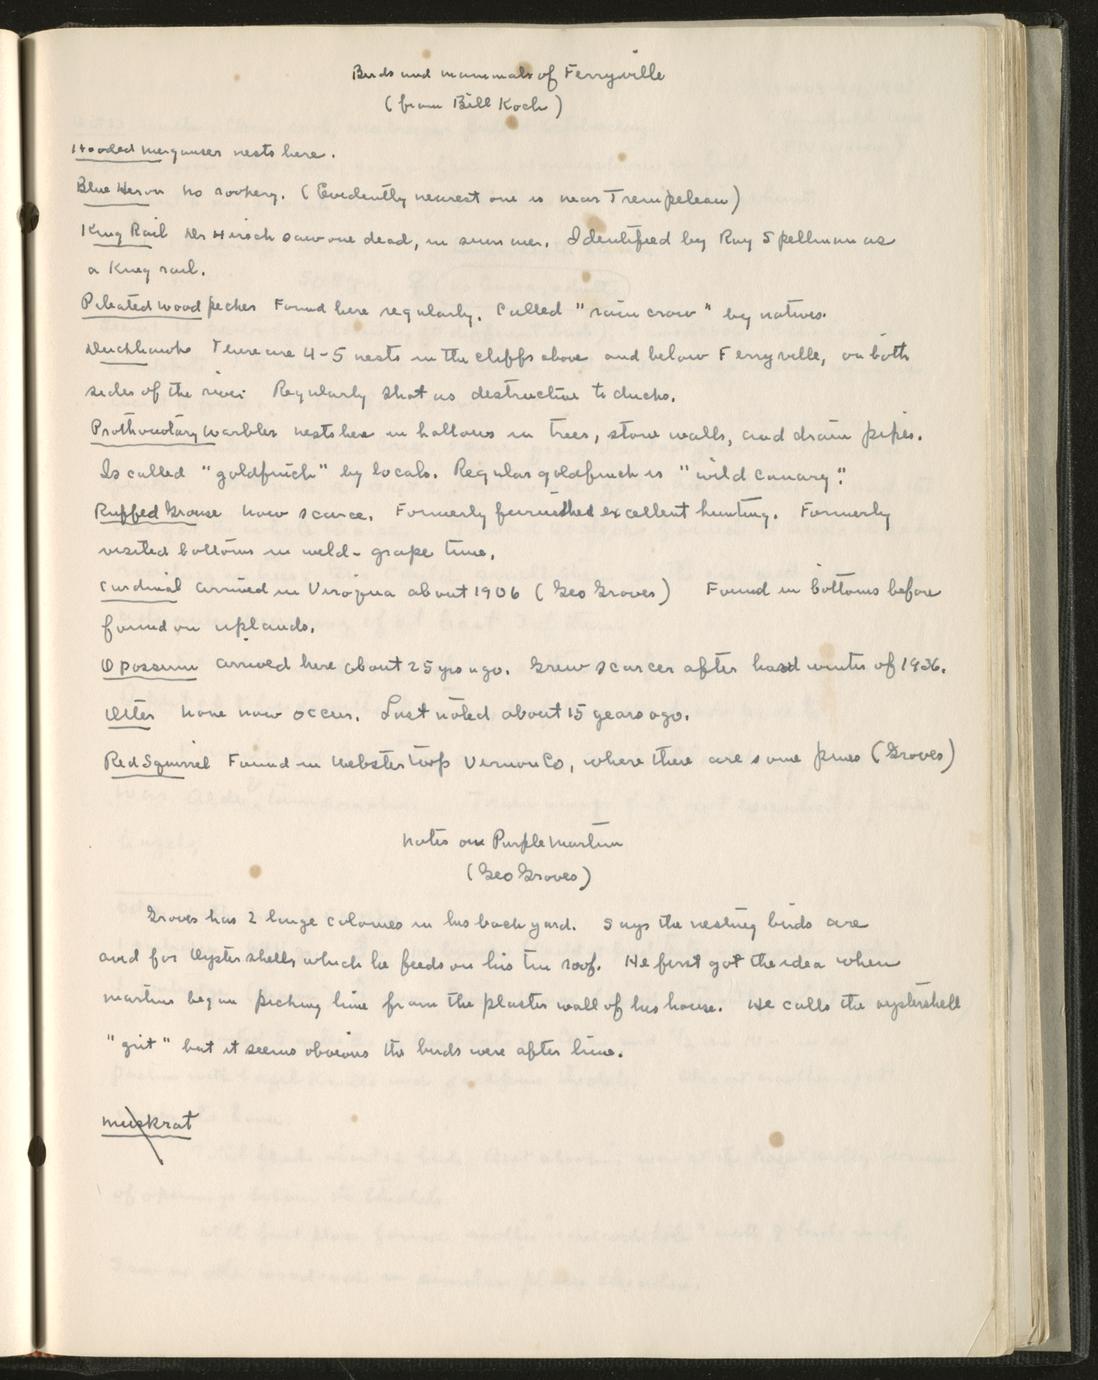 Birds and mammals of Ferryville
(from Bill Koch)
Hooded merganser nests here.
Blue Heron No rookery. (Evidently nearest one is near Trempeleau)
King Rail Des Hirsch saw one dead, in summer. Identified by Ray Spellman as
a King rail.
Pileated woodpecker Found here regularly. Called "rain crow" by natives.
Duckhawk There are 4-5 nests in the cliffs above and below Ferryville, on both
sides of the river. Regularly shot as destructive to ducks.
Prothonotary Warbler nests here in hollows in trees, stone walls, and drain pipes.
Is called "goldfinch" by locals. Regular goldfinch is "wild canary".
Ruffed Grouse Now scarce. Formerly furnished excellent hunting. Formerly
visited bottoms in wild-grape time.
Cardinal arrived in Viroqua about 1906 (Geo Groves) Found in bottoms before
found on uplands.
Opossum arrived here about 25 yrs ago. Grew scarcer after hard winter of 1936.
Otter None now occur. Last noted about 15 years ago.
Red Squirrel Found in Webster Twp Vernon Co, where there are some pines (Groves)
Notes on Purple Martin
(Geo Groves)
Groves has 2 large colonies in his back yard. Says the nesting birds are
avid for Oyster shells which he feeds on his tin roof. He first got the idea when
martins began picking lime from the plaster wall of his house. He calls the oystershell
"grit" but it seems obvious the birds were after lime.
Muskrat